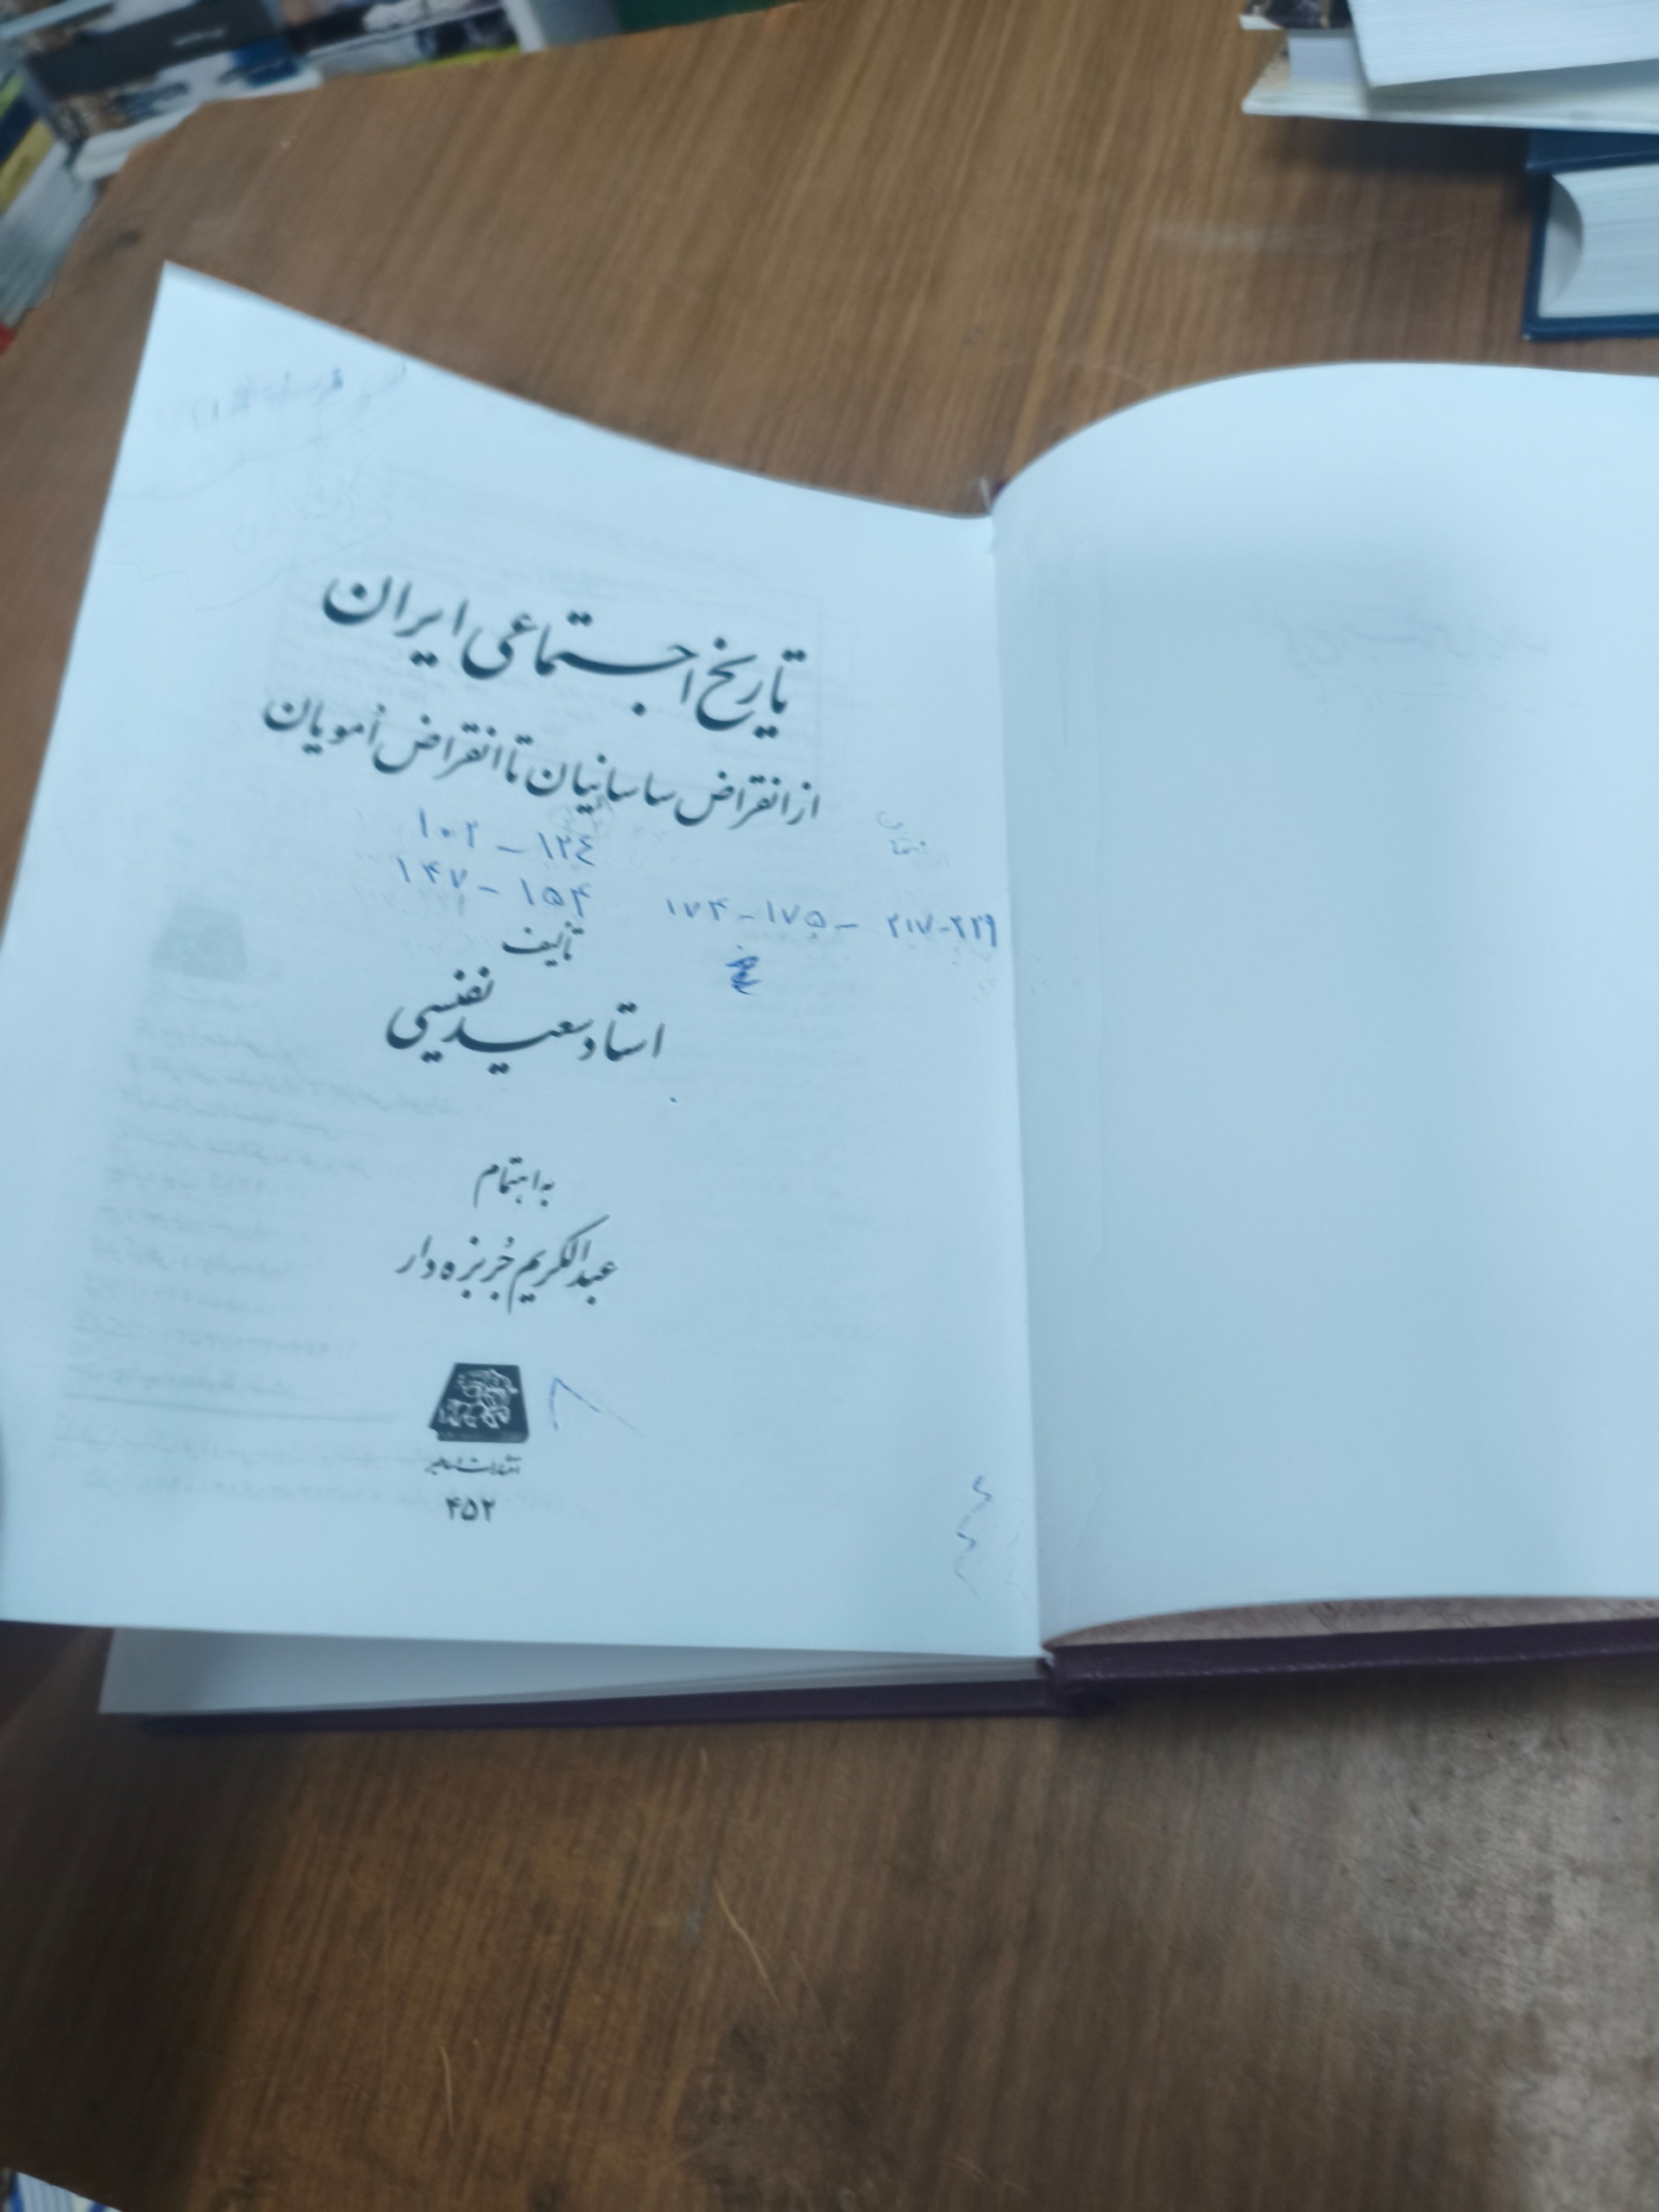 تاریخ اجتماعی ایران
از انقراض ساسانیان تا انقراض اُمویان
۱۰۲ – ۱۲٤
۱۴۷ – ۱۵۴
۱۷۴ – ۱۷۵ – ۲۱۷-۲۲۹
تألیف
استاد سعید نفیسی
به اهتمام
عبدالکریم جُربزه‌دار
انتشارات اساطیر
۴۵۲